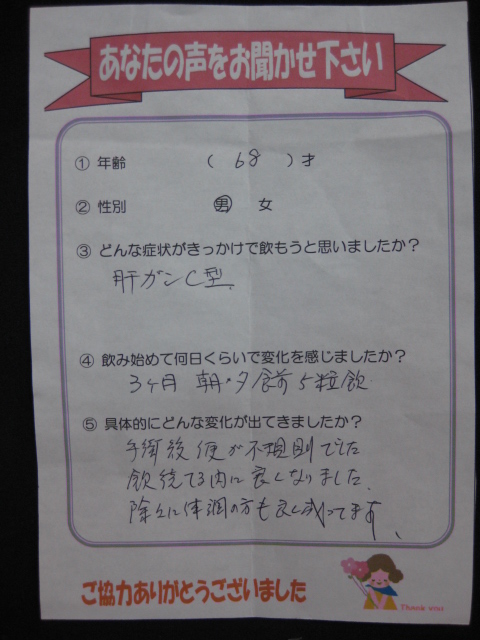 あなたの声をお聞かせ下さい
① 年齢 ( 68 ) 才
② 性別 男 女
③ どんな症状がきっかけで飲もうと思いましたか?
肝ガンC型、
④ 飲み始めて何日くらいで変化を感じましたか?
3ヶ月 朝・夕食前5粒飲
⑤ 具体的にどんな変化が出てきましたか?
手術後便が不規則でした
飲続てる内に良くなりました、
除々に体調の方も良く成ってます、
ご協力ありがとうございました
Thank you!